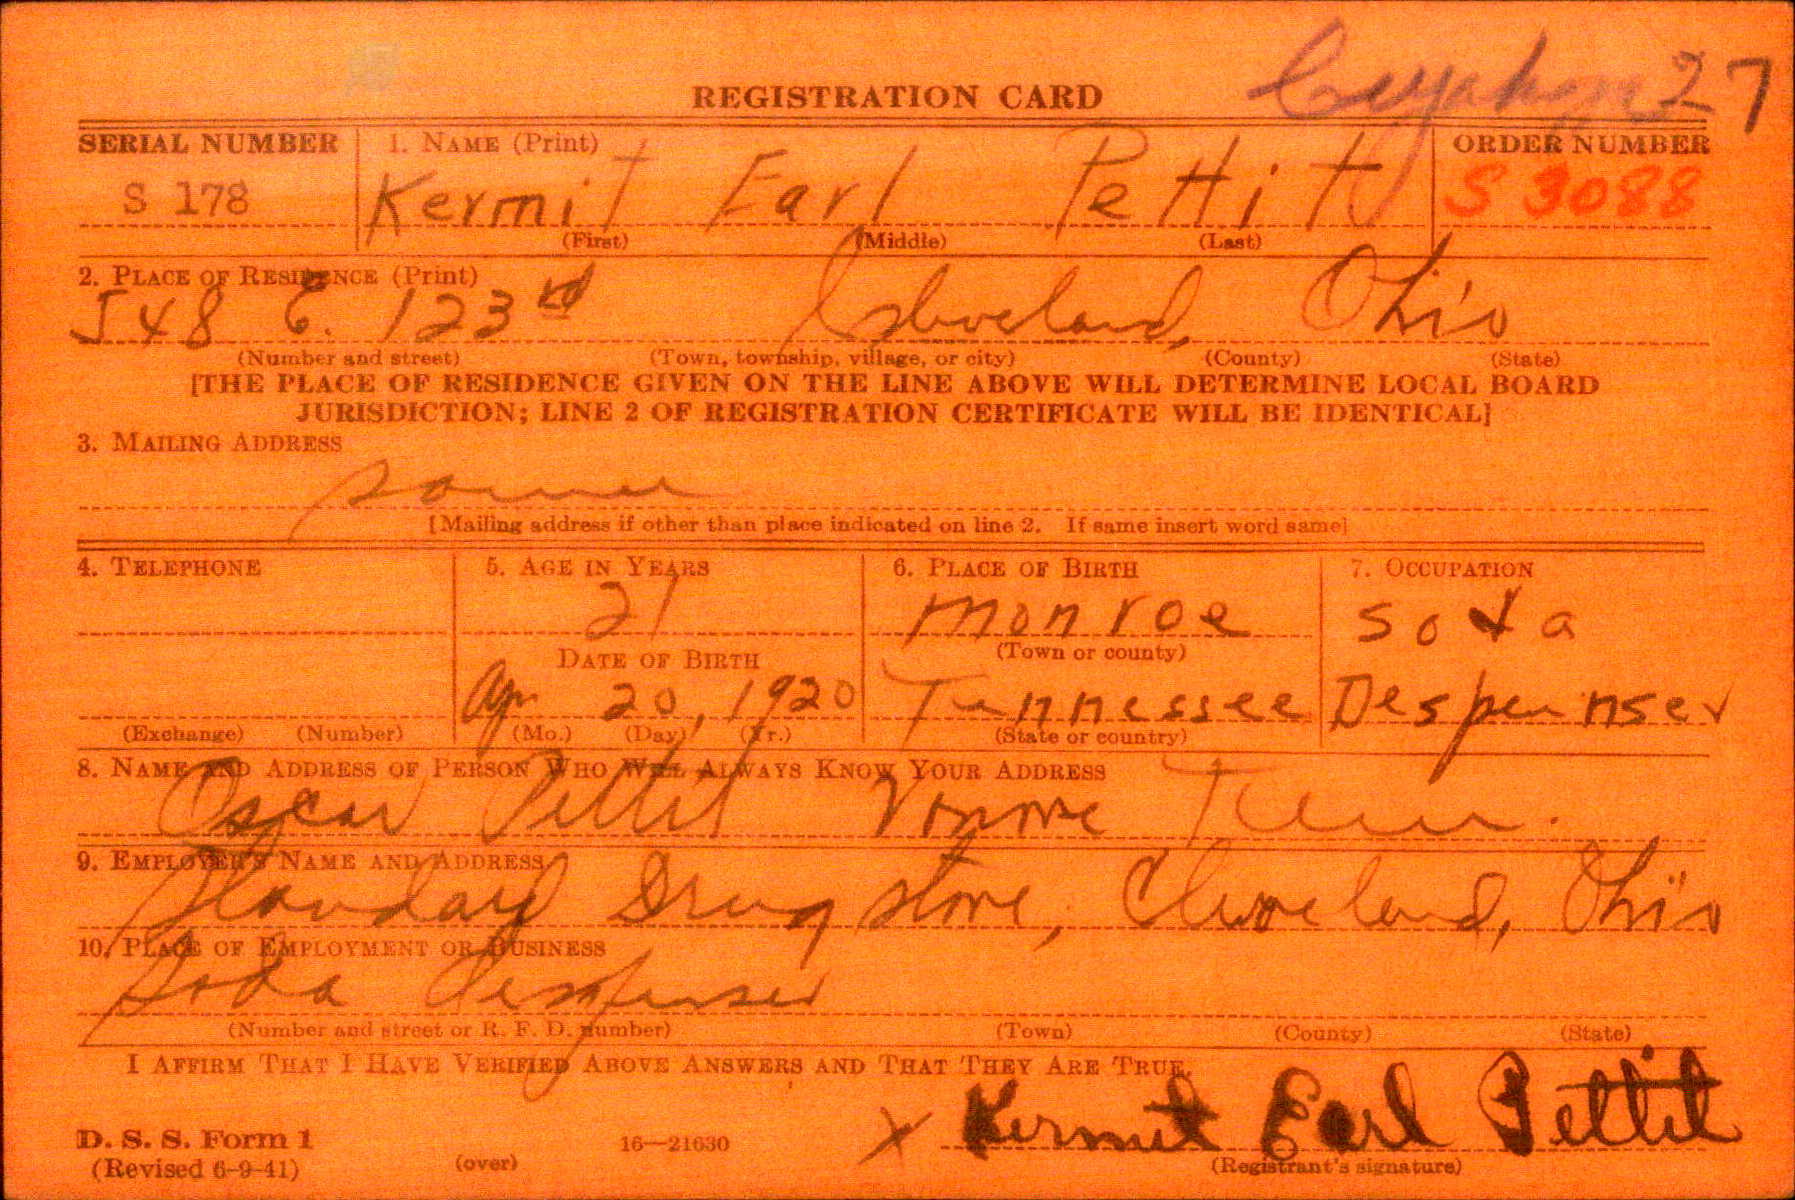 Cuyahoga 27
REGISTRATION CARD
SERIAL NUMBER 1. NAME (Print) ORDER NUMBER
S 178 Kermit Earl Pettit S 3088
(First) (Middle) (Last)
2. PLACE OF RESIDENCE (Print)
548 E. 123rd Cleveland, Ohio
(Number and street) (Town, township, village, or city) (County) (State)
[THE PLACE OF RESIDENCE GIVEN ON THE LINE ABOVE WILL DETERMINE LOCAL BOARD
JURISDICTION; LINE 2 OF REGISTRATION CERTIFICATE WILL BE IDENTICAL]
3. MAILING ADDRESS
same
[Mailing address if other than place indicated on line 2. If same insert word same]
4. TELEPHONE 5. AGE IN YEARS 6. PLACE OF BIRTH 7. OCCUPATION
21 Monroe Soda
DATE OF BIRTH (Town or county)
Apr 20, 1920 Tennessee Despenser
(Exchange) (Number) (Mo.) (Day) (Yr.) (State or country)
8. NAME AND ADDRESS OF PERSON WHO WILL ALWAYS KNOW YOUR ADDRESS
Oscar Pettit Vonore Tenn.
9. EMPLOYER'S NAME AND ADDRESS
Standard Drug store, Cleveland, Ohio
10. PLACE OF EMPLOYMENT OR BUSINESS
Soda Despenser
(Number and street or R. F. D. number) (Town) (County) (State)
I AFFIRM THAT I HAVE VERIFIED ABOVE ANSWERS AND THAT THEY ARE TRUE.
x Kermit Earl Pettit
D. S. S. Form 1 16—21630
(Revised 6-9-41) (over) (Registrant's signature)